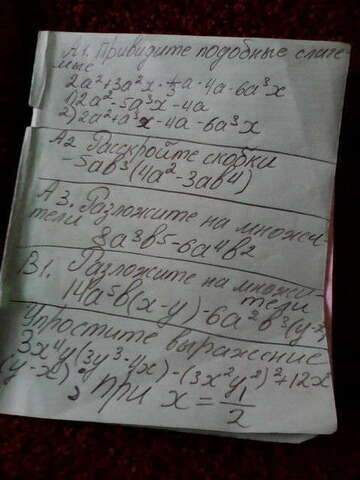 А1. Привидите подобные слаге-
мые
2a²+3a²x · 1/3 a - 4a - 6a³x
1) 2a² - 5a³x - 4a
2) 2a²+a³x - 4a - 6a³x
А2 Раскройте скобки
-5ab³(4a² - 3ab4)
А3. Разложите на множи-
тели
8a³b5 - 6a4b2
В1. Разложите на множи-
тели
14a⁵b(x-y) - 6a²b³(y-x)
Упростите выражение
3x⁴y(3y³-4x) - (3x²y²)²+12x
(y-x)
при x = 1/2